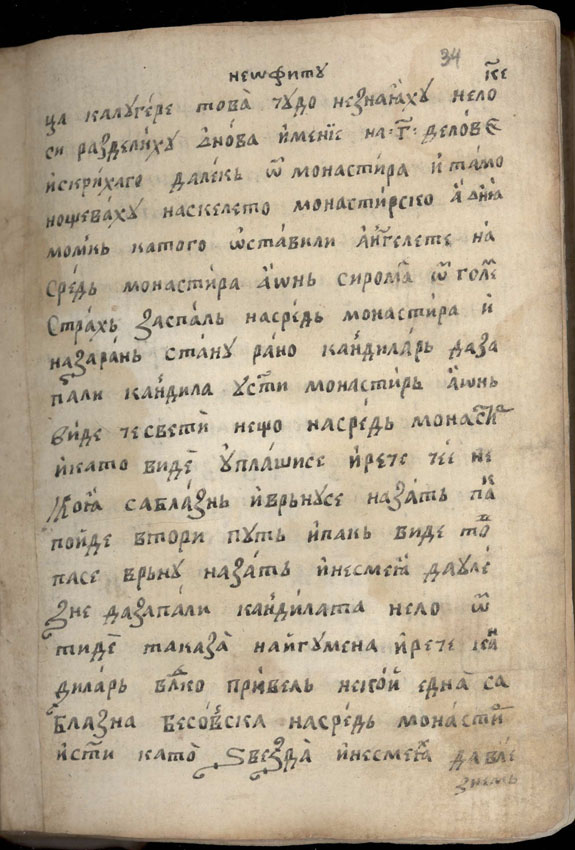 34
неѡфитꙋ
ца калꙋгере това чꙋдо незнаꙗхꙋ нело
си разделихꙋ ѡнова имение на г҃ делове
искрихаго далекь ѿ монастира и тамо
нощевахꙋ наскелето монастирско а дніа
момкь катого ѡставили ангелете на
средь монастира аѡнь сирома ѿ голе
страхь заспаль насредь монастира и
назарань станꙋ рано кандиларь даза
пали кандила ꙋсти монастирь аѡнь
виде чесвети нещо насредь монастира
икато виде ꙋплашисе ирече чеѐ не
коꙗ саблазнь иврьнꙋсе назать пак
пойде втори пꙋть ипакь виде тов
пасе врьнꙋ назать инесмеꙗ даꙋле
зне дазапали кандилата нело ѿ
тиде таказа найгꙋмена ирече кан
диларь влдко привель некой една са
блазна бесовска насредь монасти
исти като ѕвезда инесмеꙗ давле
знемь